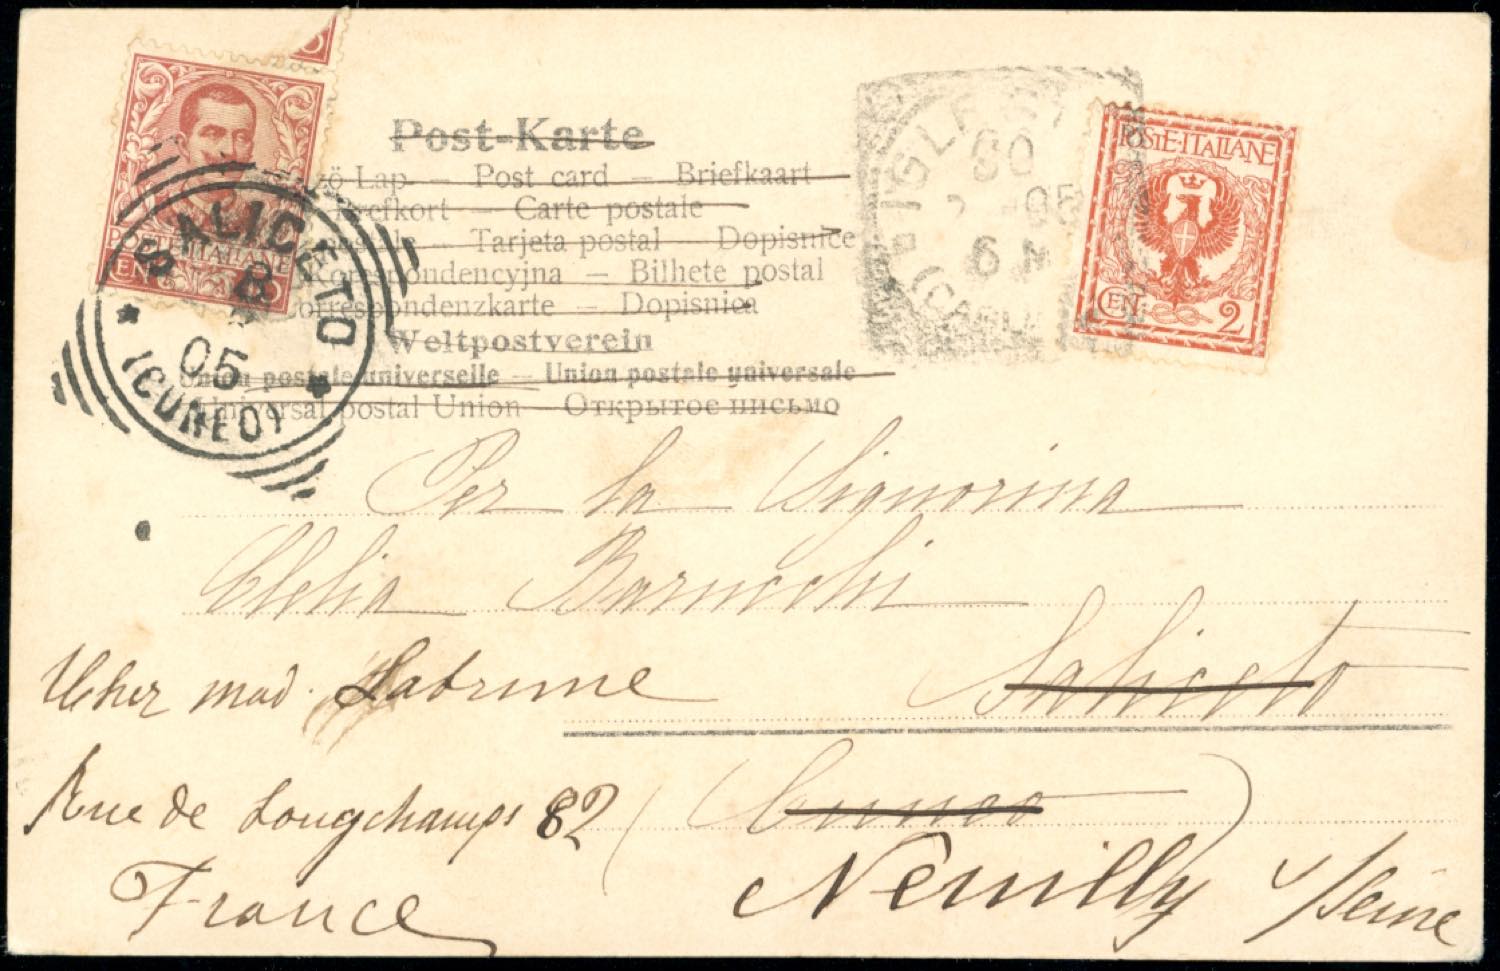 Post-Karte
-Lap — Post card — Briefkaart
Brefkort — Carte postale
— Tarjeta postal — Dopisnice
Korespondencyjna — Bilhete postal
Correspondenzkarte — Dopisnica
Weltpostverein
Union postale universelle — Union postale universale
Universal postal Union — Открытое письмо
POSTE ITALIANE
CENT
SALICETO
8
05
(CUNEO)
IGLESI
30
05
6
(CAGLI
POSTE·ITALIANE
CENT. 2
Per la Signorina
Clelia
Saliceto
Cher mad.
Rue de Longchamps 82
(Cuneo)
Neuilly s/Seine
France